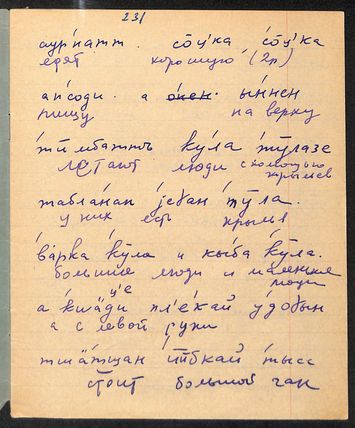 231
аурнатт. со̄ц'ка со̄ц'ка
едят хорошую (2р)
апсоди. а о̶н̶е̶н̶. ыннен
пищу на верху
тӣмбаттъ кула тӯлазе
летают люди с помощью
крыльев
таблāнан jеђан тӯла.
у них есть крылья
вāрка кӯла и кы̄ба кӯла.
большие люди и маленькие
люди
а кшāди пл'е́кай у́доӷын
а с левой руки
тшāтшан и́̄ббкай тысс
стоит большой чан